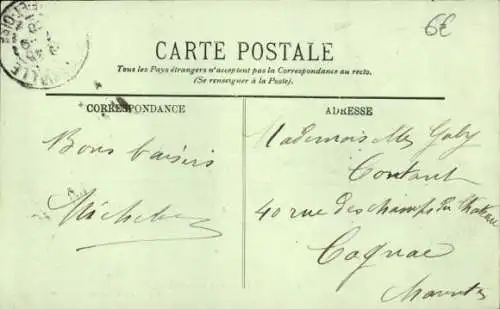 6€
CARTE POSTALE
Tous les Pays étrangers n'acceptent pas la Correspondance au recto.
(Se renseigner à la Poste).
CORRESPONDANCE
ADRESSE
Bons baisers
Mademoiselle Gaby
Contant
40 rue des champs du Chateau
Cognac
Charente